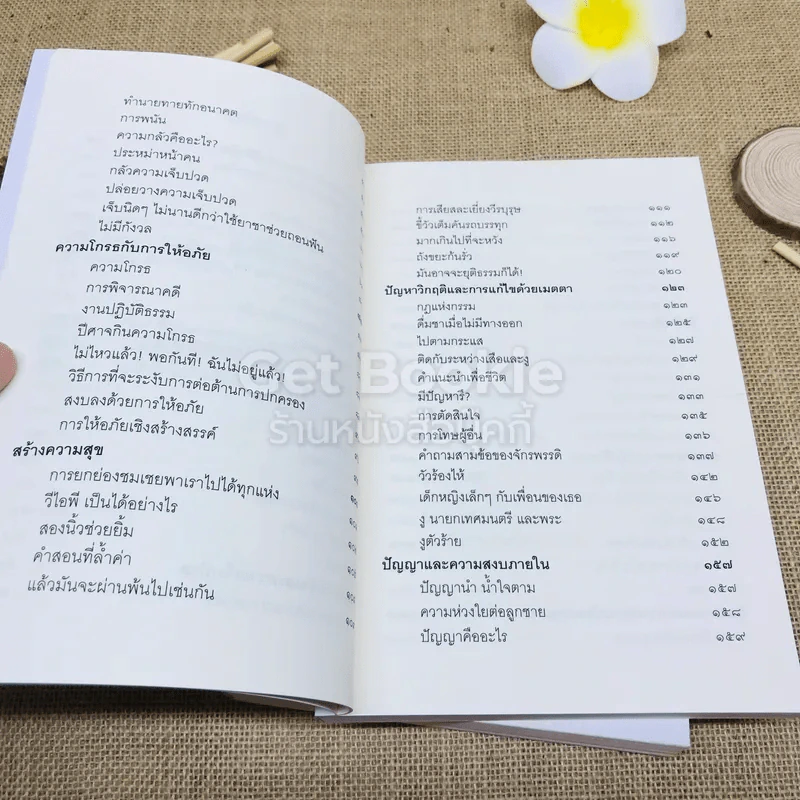 ทำนายทายทักอนาคต
การพนัน
ความกลัวคืออะไร?
ประหม่าหน้าคน
กลัวความเจ็บปวด
ปล่อยวางความเจ็บปวด
เจ็บนิดๆ ไม่นานดีกว่าใช้ยาชาช่วยถอนฟัน
ไม่มีกังวล
ความโกรธกับการให้อภัย
ความโกรธ
การพิจารณาคดี
งานปฏิบัติธรรม
ปีศาจกินความโกรธ
ไม่ไหวแล้ว! พอกันที! ฉันไม่อยู่แล้ว!
วิธีการที่จะระงับการต่อต้านการปกครอง
สงบลงด้วยการให้อภัย
การให้อภัยเชิงสร้างสรรค์
สร้างความสุข
การยกย่องชมเชยพาเราไปได้ทุกแห่ง
วีไอพี เป็นได้อย่างไร
สองนิ้วช่วยยิ้ม
คำสอนที่ล้ำค่า
แล้วมันจะผ่านพ้นไปเช่นกัน
การเสียสละเยี่ยงวีรบุรุษ ๑๑๑
ขี้วัวเต็มคันรถบรรทุก ๑๑๒
มากเกินไปที่จะหวัง ๑๑๖
ถังขยะก้นรั่ว ๑๑๙
มันอาจจะยุติธรรมก็ได้! ๑๒๐
ปัญหาวิกฤติและการแก้ไขด้วยเมตตา ๑๒๓
กฎแห่งกรรม ๑๒๓
ดื่มชาเมื่อไม่มีทางออก ๑๒๕
ไปตามกระแส ๑๒๗
ติดกับระหว่างเสือและงู ๑๒๙
คำแนะนำเพื่อชีวิต ๑๓๑
มีปัญหารึ? ๑๓๓
การตัดสินใจ ๑๓๕
การโทษผู้อื่น ๑๓๖
คำถามสามข้อของจักรพรรดิ ๑๓๗
วัวร้องไห้ ๑๔๒
เด็กหญิงเล็กๆ กับเพื่อนของเธอ ๑๔๖
งู นายกเทศมนตรี และพระ ๑๔๘
งูตัวร้าย ๑๕๒
ปัญญาและความสงบภายใน ๑๕๗
ปัญญานำ น้ำใจตาม ๑๕๗
ความห่วงใยต่อลูกชาย ๑๕๘
ปัญญาคืออะไร ๑๕๙
Get Bookie
ร้านหนังสือบุคกี้